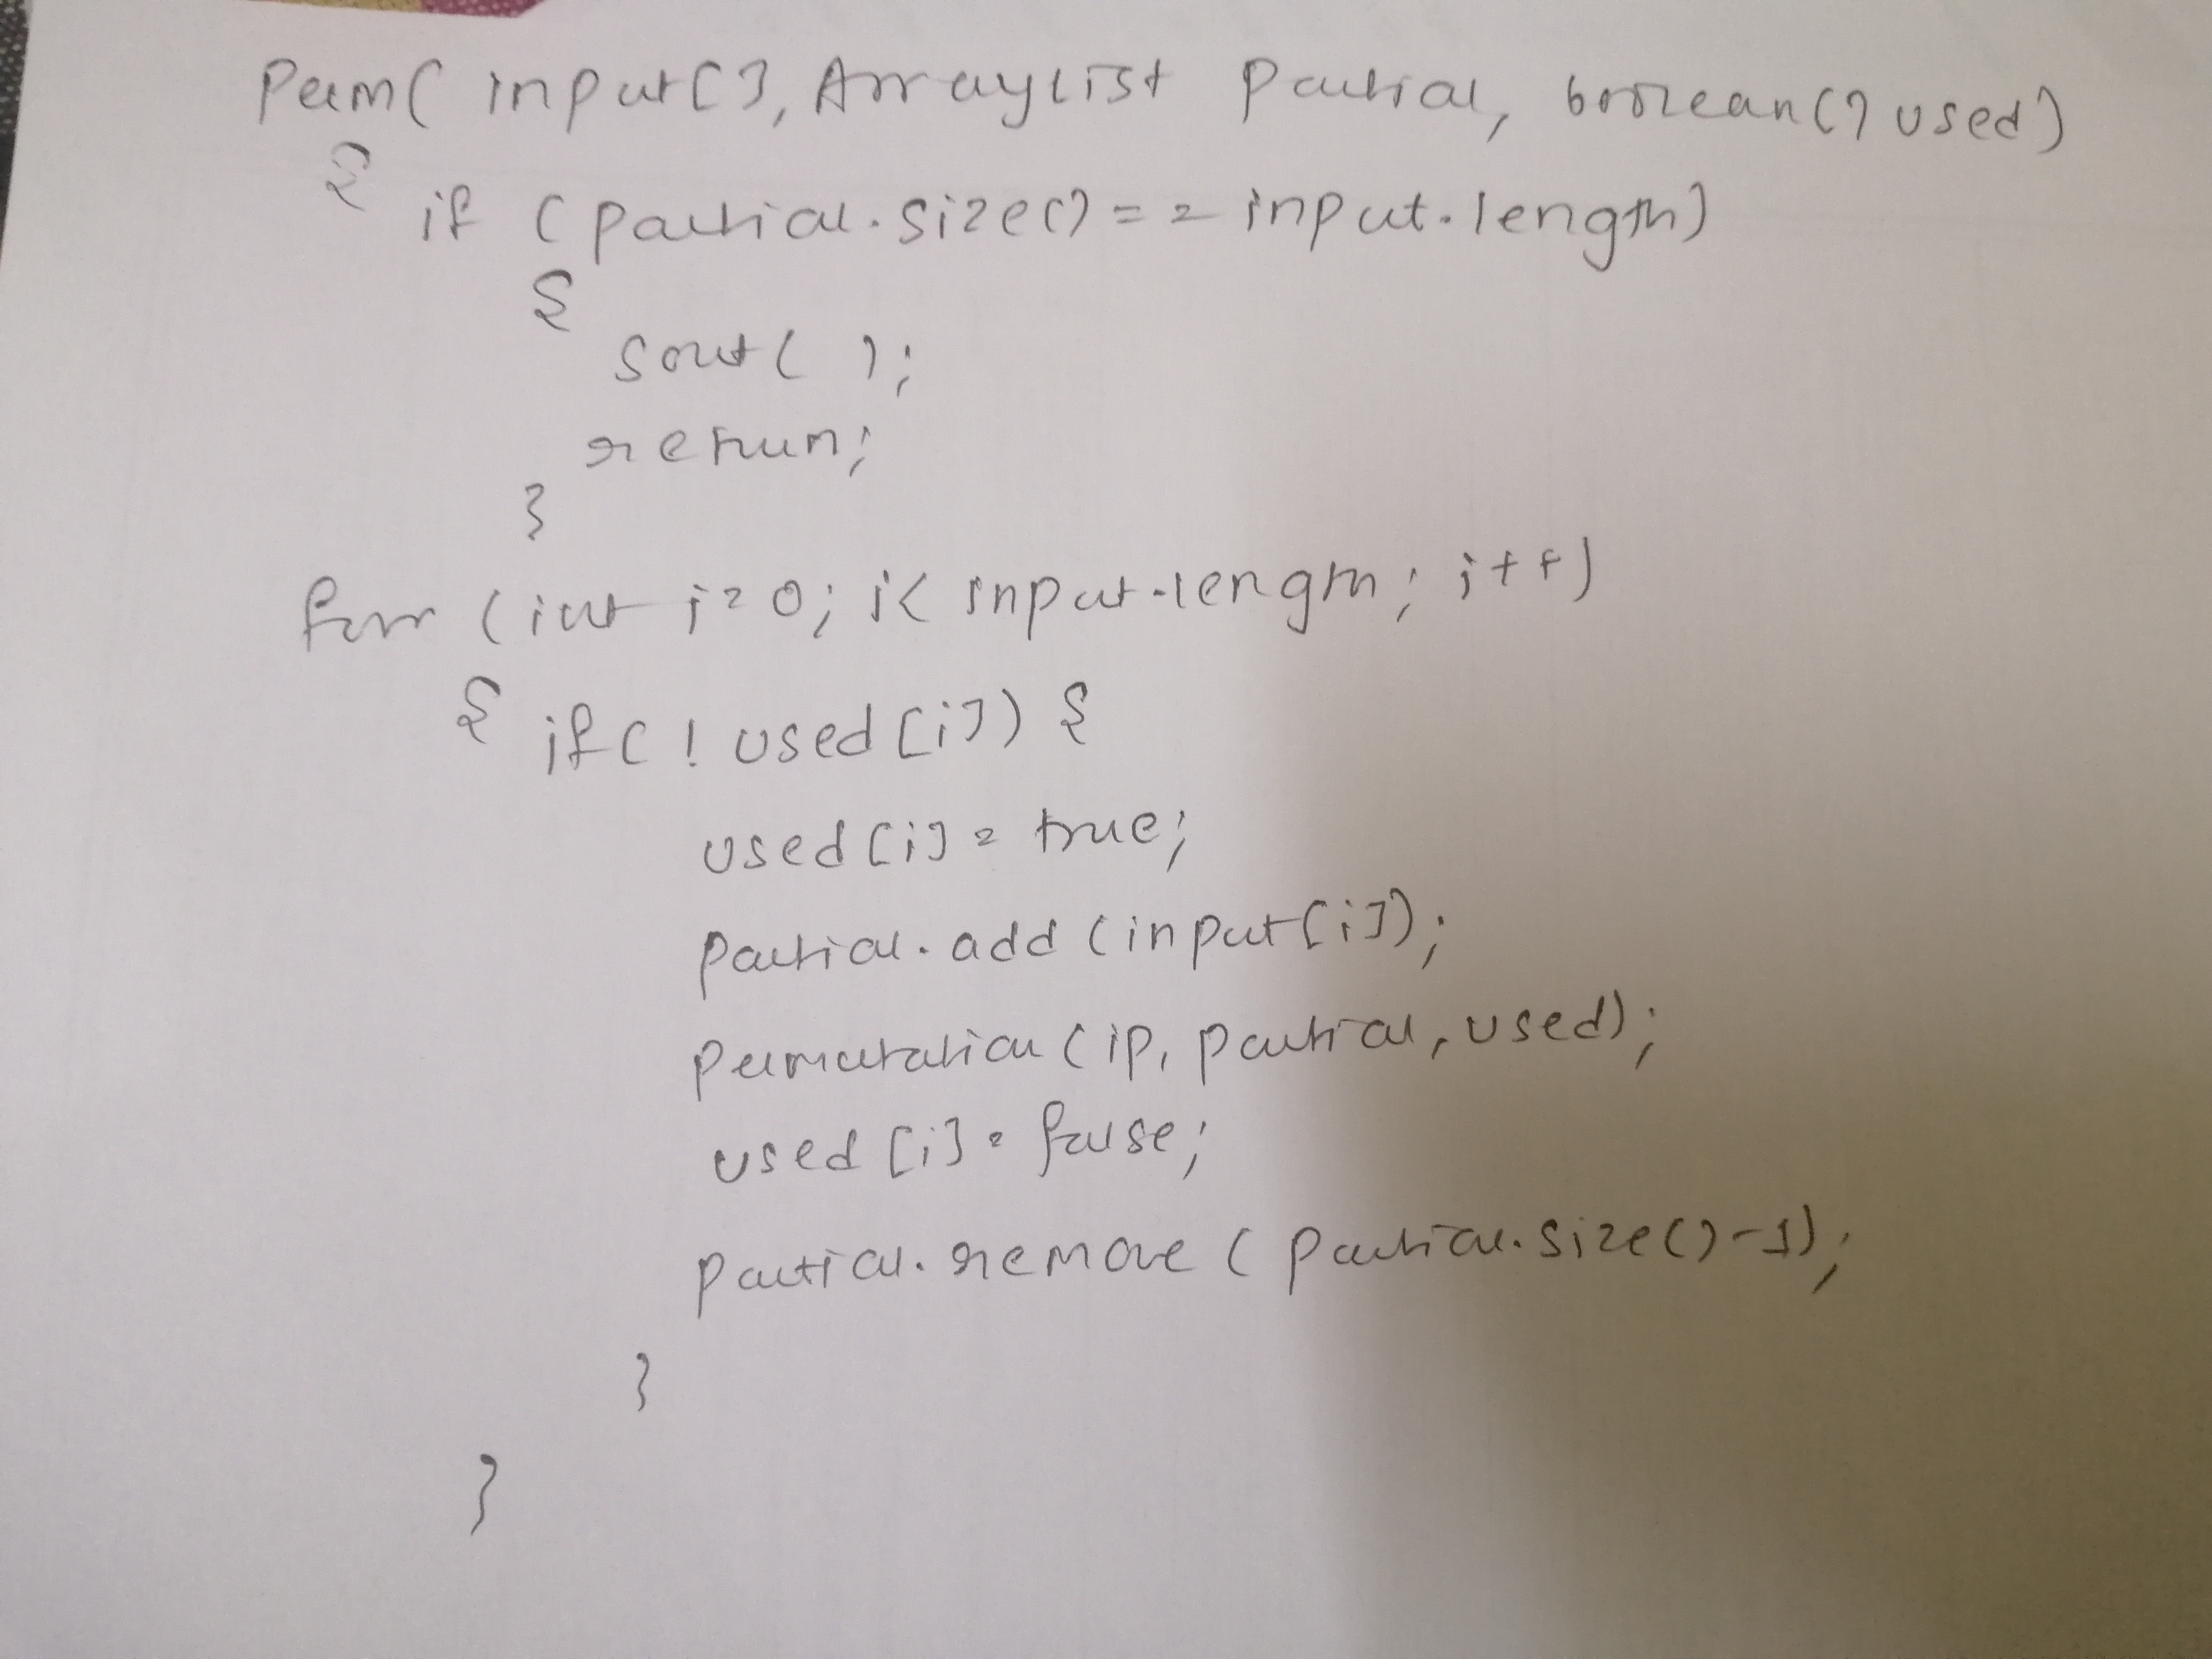 Perm( input[], ArrayList Partial, boolean[] used)
{
if (partial.size() == input.length)
{
sout( );
return;
}
for (int i=0; i< input.length; i++)
{ if( ! used[i]) {
used[i] = true;
partial.add(input[i]);
permutation(ip, partial, used);
used[i] = false;
partial.remove(partial.size()-1);
}
}